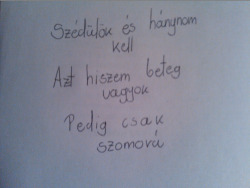 Szédülök és hánynom
kell
Azt hiszem beteg
vagyok
Pedig csak
szomorú